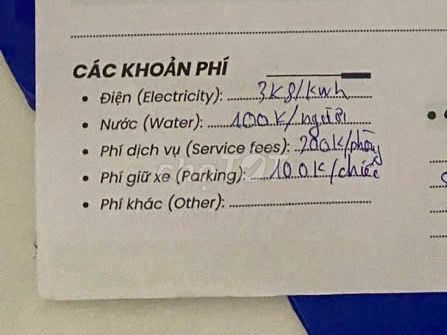 CÁC KHOẢN PHÍ
• Điện (Electricity): 3k8/kwh
• Nước (Water): 100K/người
• Phí dịch vụ (Service fees): 200k/phòng
• Phí giữ xe (Parking): 100k/chiếc
• Phí khác (Other):